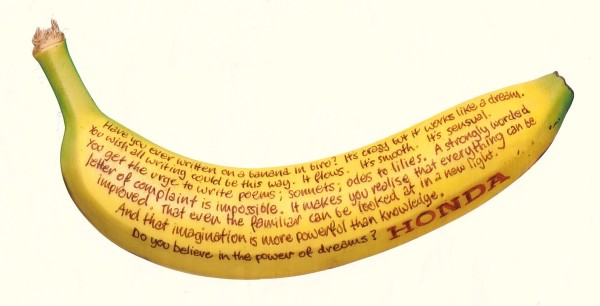 Have you ever written on a banana in biro? It's crazy but it works like a dream.
You wish all writing could be this way. It flows. It's smooth. It's sensual.
You get the urge to write poems; sonnets; odes to lilies. A strongly worded
letter of complaint is impossible. It makes you realise that everything can be
improved. That even the familiar can be looked at in a new light.
And that imagination is more powerful than knowledge.
Do you believe in the power of dreams?
HONDA